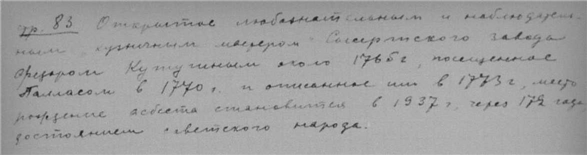 гр. 83 Открытое любознательным и наблюдатель-
ным кузничным мастером Сысертского завода
Федором Кутушным около 1765 г, посещенное
Палласом в 1770 г. и описанное им в 1773 г, место
рождение асбеста становится в 1937 г, через 172 года
достоянием советского народа.